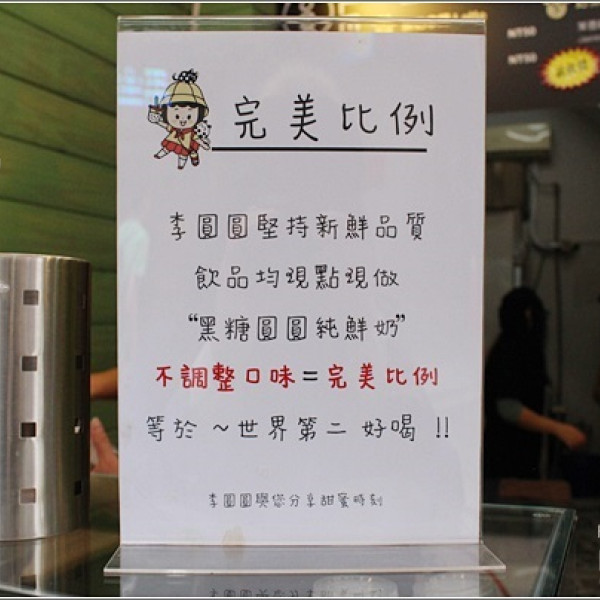 NT50
NT50
完美比例
李圓圓堅持新鮮品質
飲品均現點現做
“黑糖圓圓純鮮奶”
不調整口味=完美比例
等於 ~世界第二 好喝 !!
李圓圓與您分享甜蜜時刻